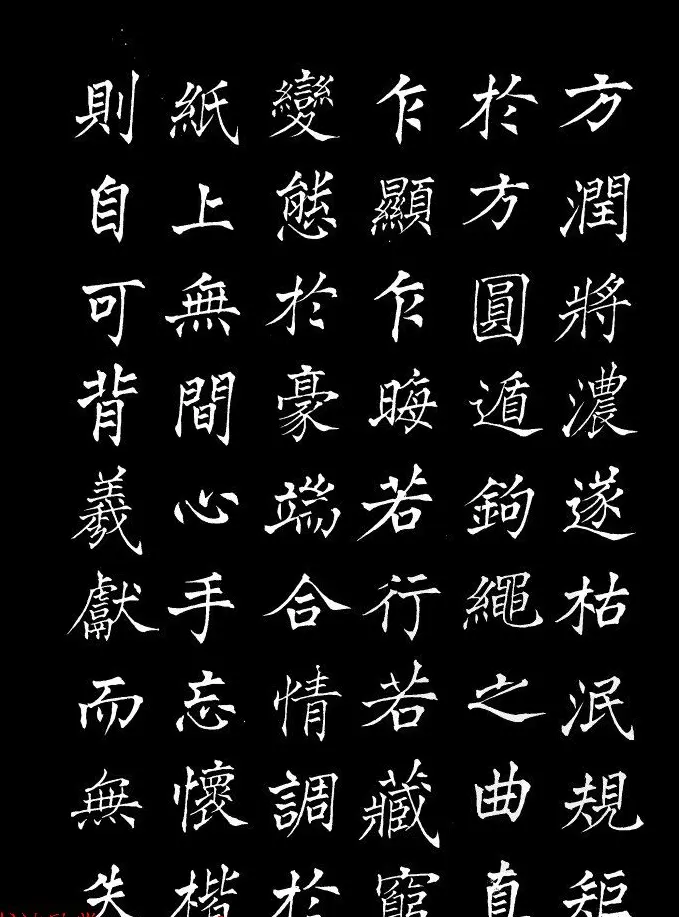 方潤將濃遂枯泯規矩
於方圓遁鉤繩之曲直
乍顯乍晦若行若藏窮
變態於豪端合情調於
紙上無間心手忘懷楷
則自可背羲獻而無失